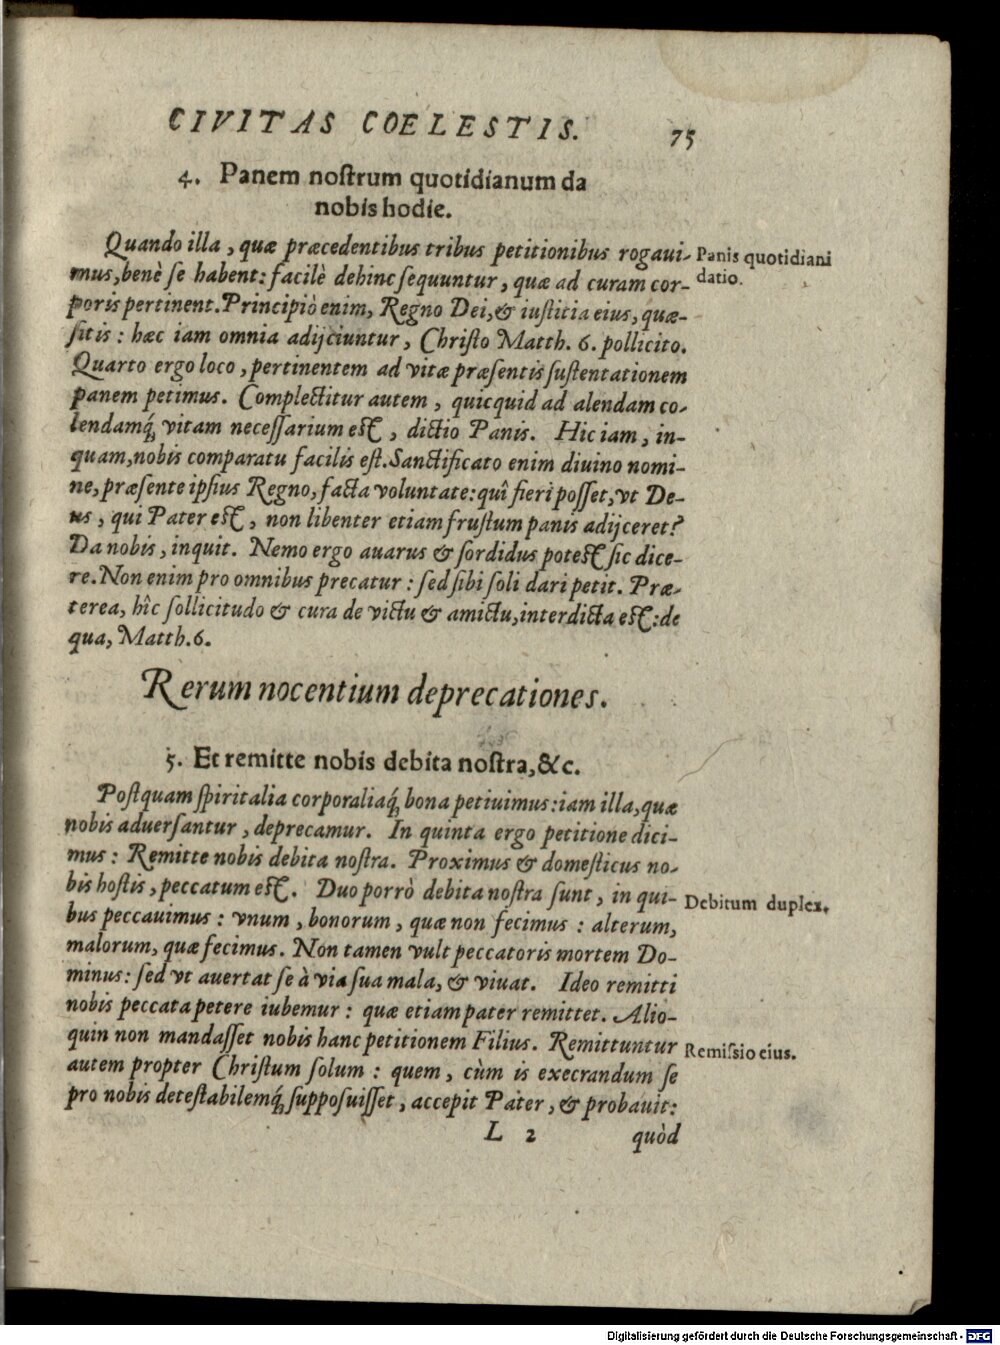 CIVITAS COELESTIS. 75
4. Panem nostrum quotidianum da
nobis hodie.
Quando illa, quæ præcedentibus tribus petitionibus rogaui-
mus, benè se habent: facilè dehinc sequuntur, quæ ad curam cor-
poris pertinent. Principiò enim, Regno Dei, & iustitia eius, quæ-
sitis: hæc iam omnia adijciuntur, Christo Matth. 6. pollicito.
Quarto ergo loco, pertinentem ad vitæ præsentis sustentationem
panem petimus. Complectitur autem, quicquid ad alendam co-
lendamq́; vitam necessarium est, dictio Panis. Hic iam, in-
quam, nobis comparatu facilis est. Sanctificato enim diuino nomi-
ne, præsente ipsius Regno, facta voluntate: quî fieri posset, vt De-
us, qui Pater est, non libenter etiam frustum panis adijceret?
Da nobis, inquit. Nemo ergo auarus & sordidus potest sic dice-
re. Non enim pro omnibus precatur: sed sibi soli dari petit. Præ-
terea, hîc sollicitudo & cura de victu & amictu, interdicta est: de
qua, Matth. 6.
Panis quotidiani
datio.
Rerum nocentium deprecationes.
5. Et remitte nobis debita nostra, &c.
Postquam spiritalia corporaliaq́; bona petiuimus: iam illa, quæ
nobis aduersantur, deprecamur. In quinta ergo petitione dici-
mus: Remitte nobis debita nostra. Proximus & domesticus no-
bis hostis, peccatum est. Duo porrò debita nostra sunt, in qui-
bus peccauimus: vnum, bonorum, quæ non fecimus: alterum,
malorum, quæ fecimus. Non tamen vult peccatoris mortem Do-
minus: sed vt auertat se à via sua mala, & viuat. Ideo remitti
nobis peccata petere iubemur: quæ etiam pater remittet. Alio-
quin non mandasset nobis hanc petitionem Filius. Remittuntur
autem propter Christum solum: quem, cùm is execrandum se
pro nobis detestabilemq́; supposuisset, accepit Pater, & probauit:
Debitum duplex.
Remissio eius.
L 2 quòd
Digitalisierung gefördert durch die Deutsche Forschungsgemeinschaft - DFG